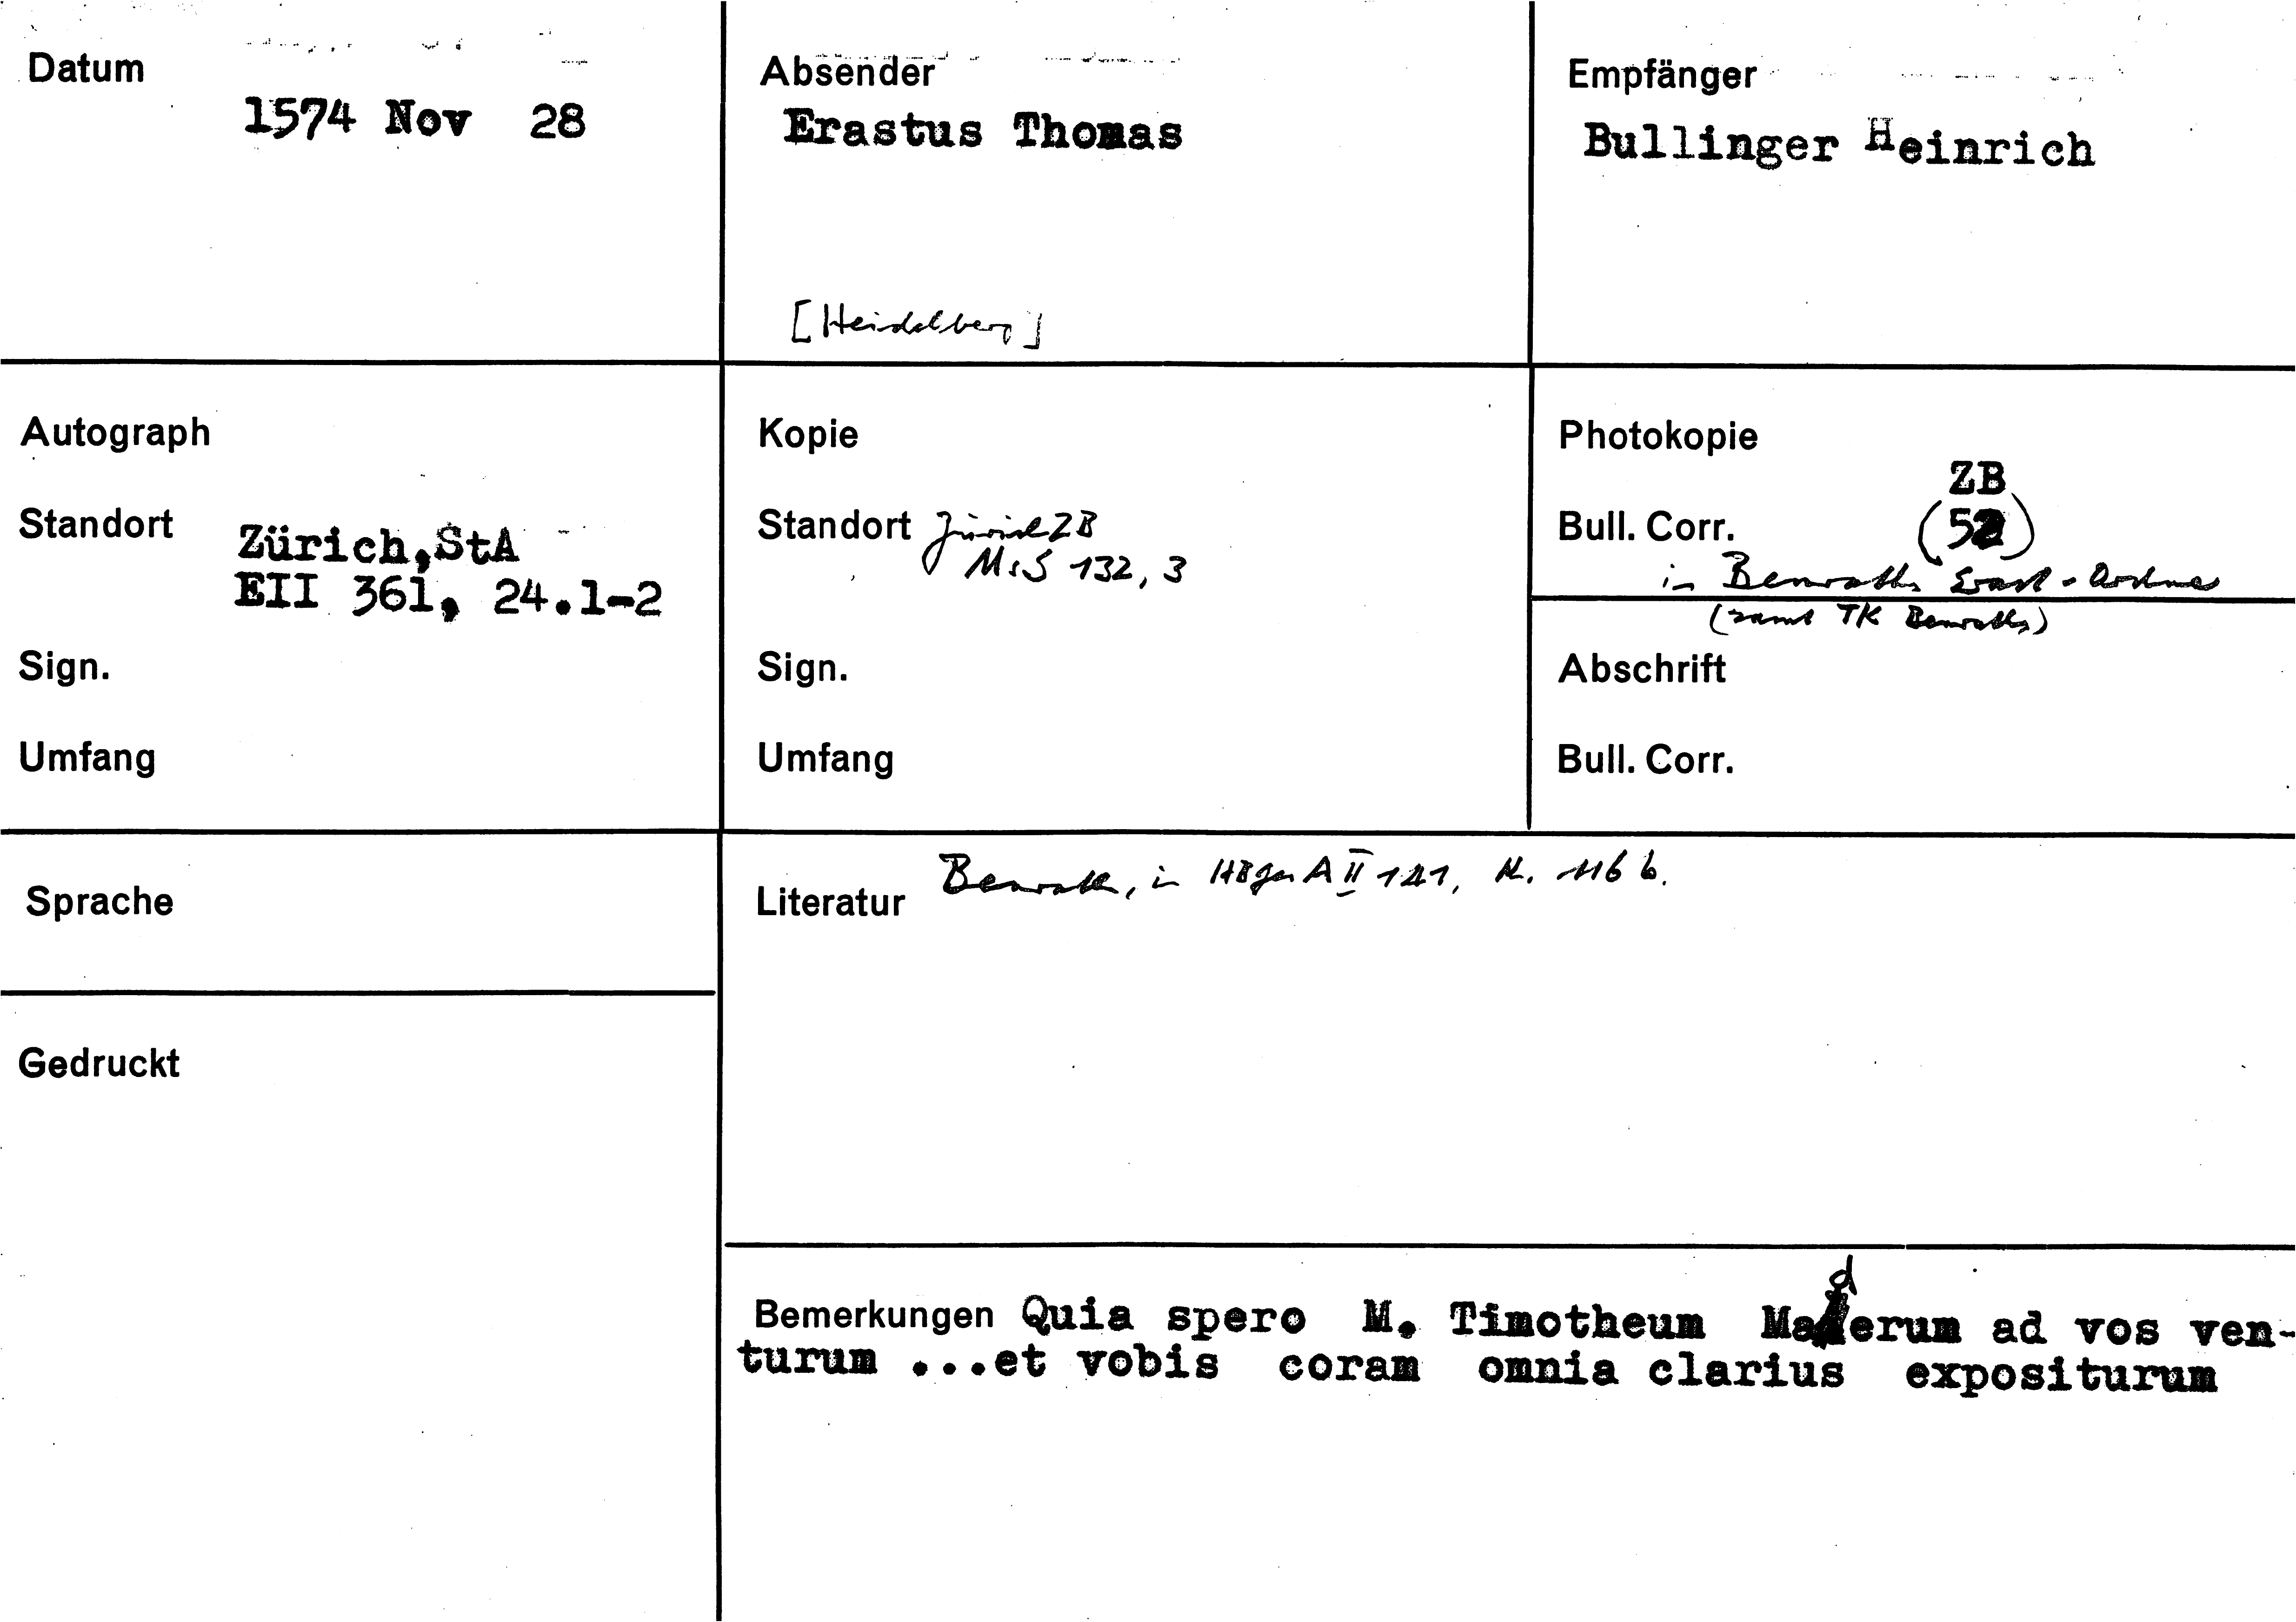 Datum
1574 Nov 28
Absender
Erastus Thomas
[Heidelberg]
Empfänger
Bullinger Heinrich
Autograph
Standort Zürich, StA
EII 361, 24.1-2
Sign.
Umfang
Kopie
Standort Zürich ZB
Ms S 132, 3
Sign.
Umfang
Photokopie
ZB
Bull. Corr. (52)
in Benraths Erast-Ordner
(samt TK Benraths)
Abschrift
Bull. Corr.
Sprache
Gedruckt
Literatur Benrath, in HBGesA II 121, N. 116 b.
Bemerkungen Quia spero M. Timotheum Maderum ad vos ven-
turum ...et vobis coram omnia clarius expositurum